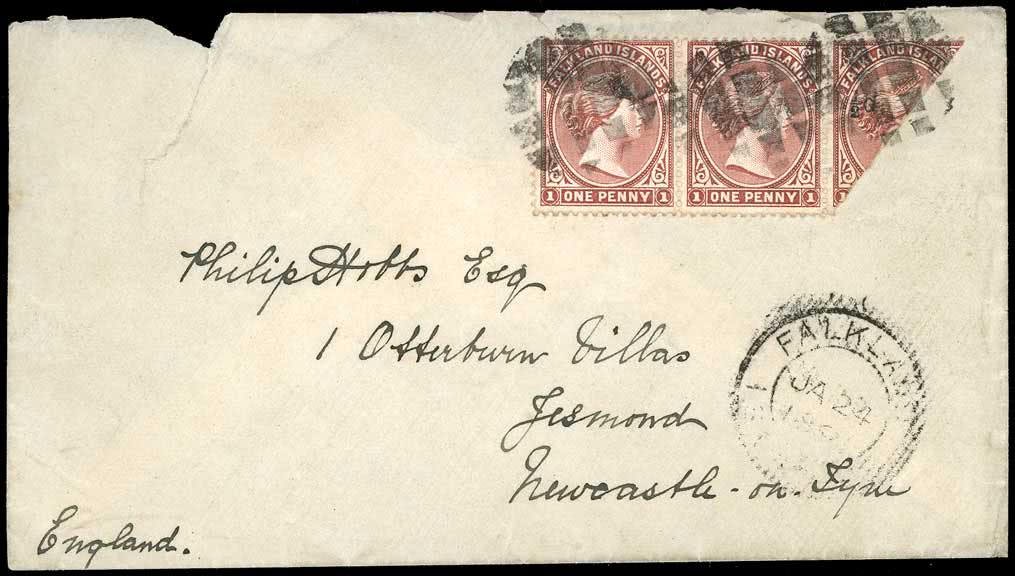 FALKLAND ISLANDS
1 ONE PENNY 1
FALKLAND ISLANDS
1 ONE PENNY 1
FALKLAND ISLAND
1
Philip Hobbs Esq
1 Otterburn Villas
Jesmond
Newcastle-on-Tyne
England.
FALKLAND
JA 24